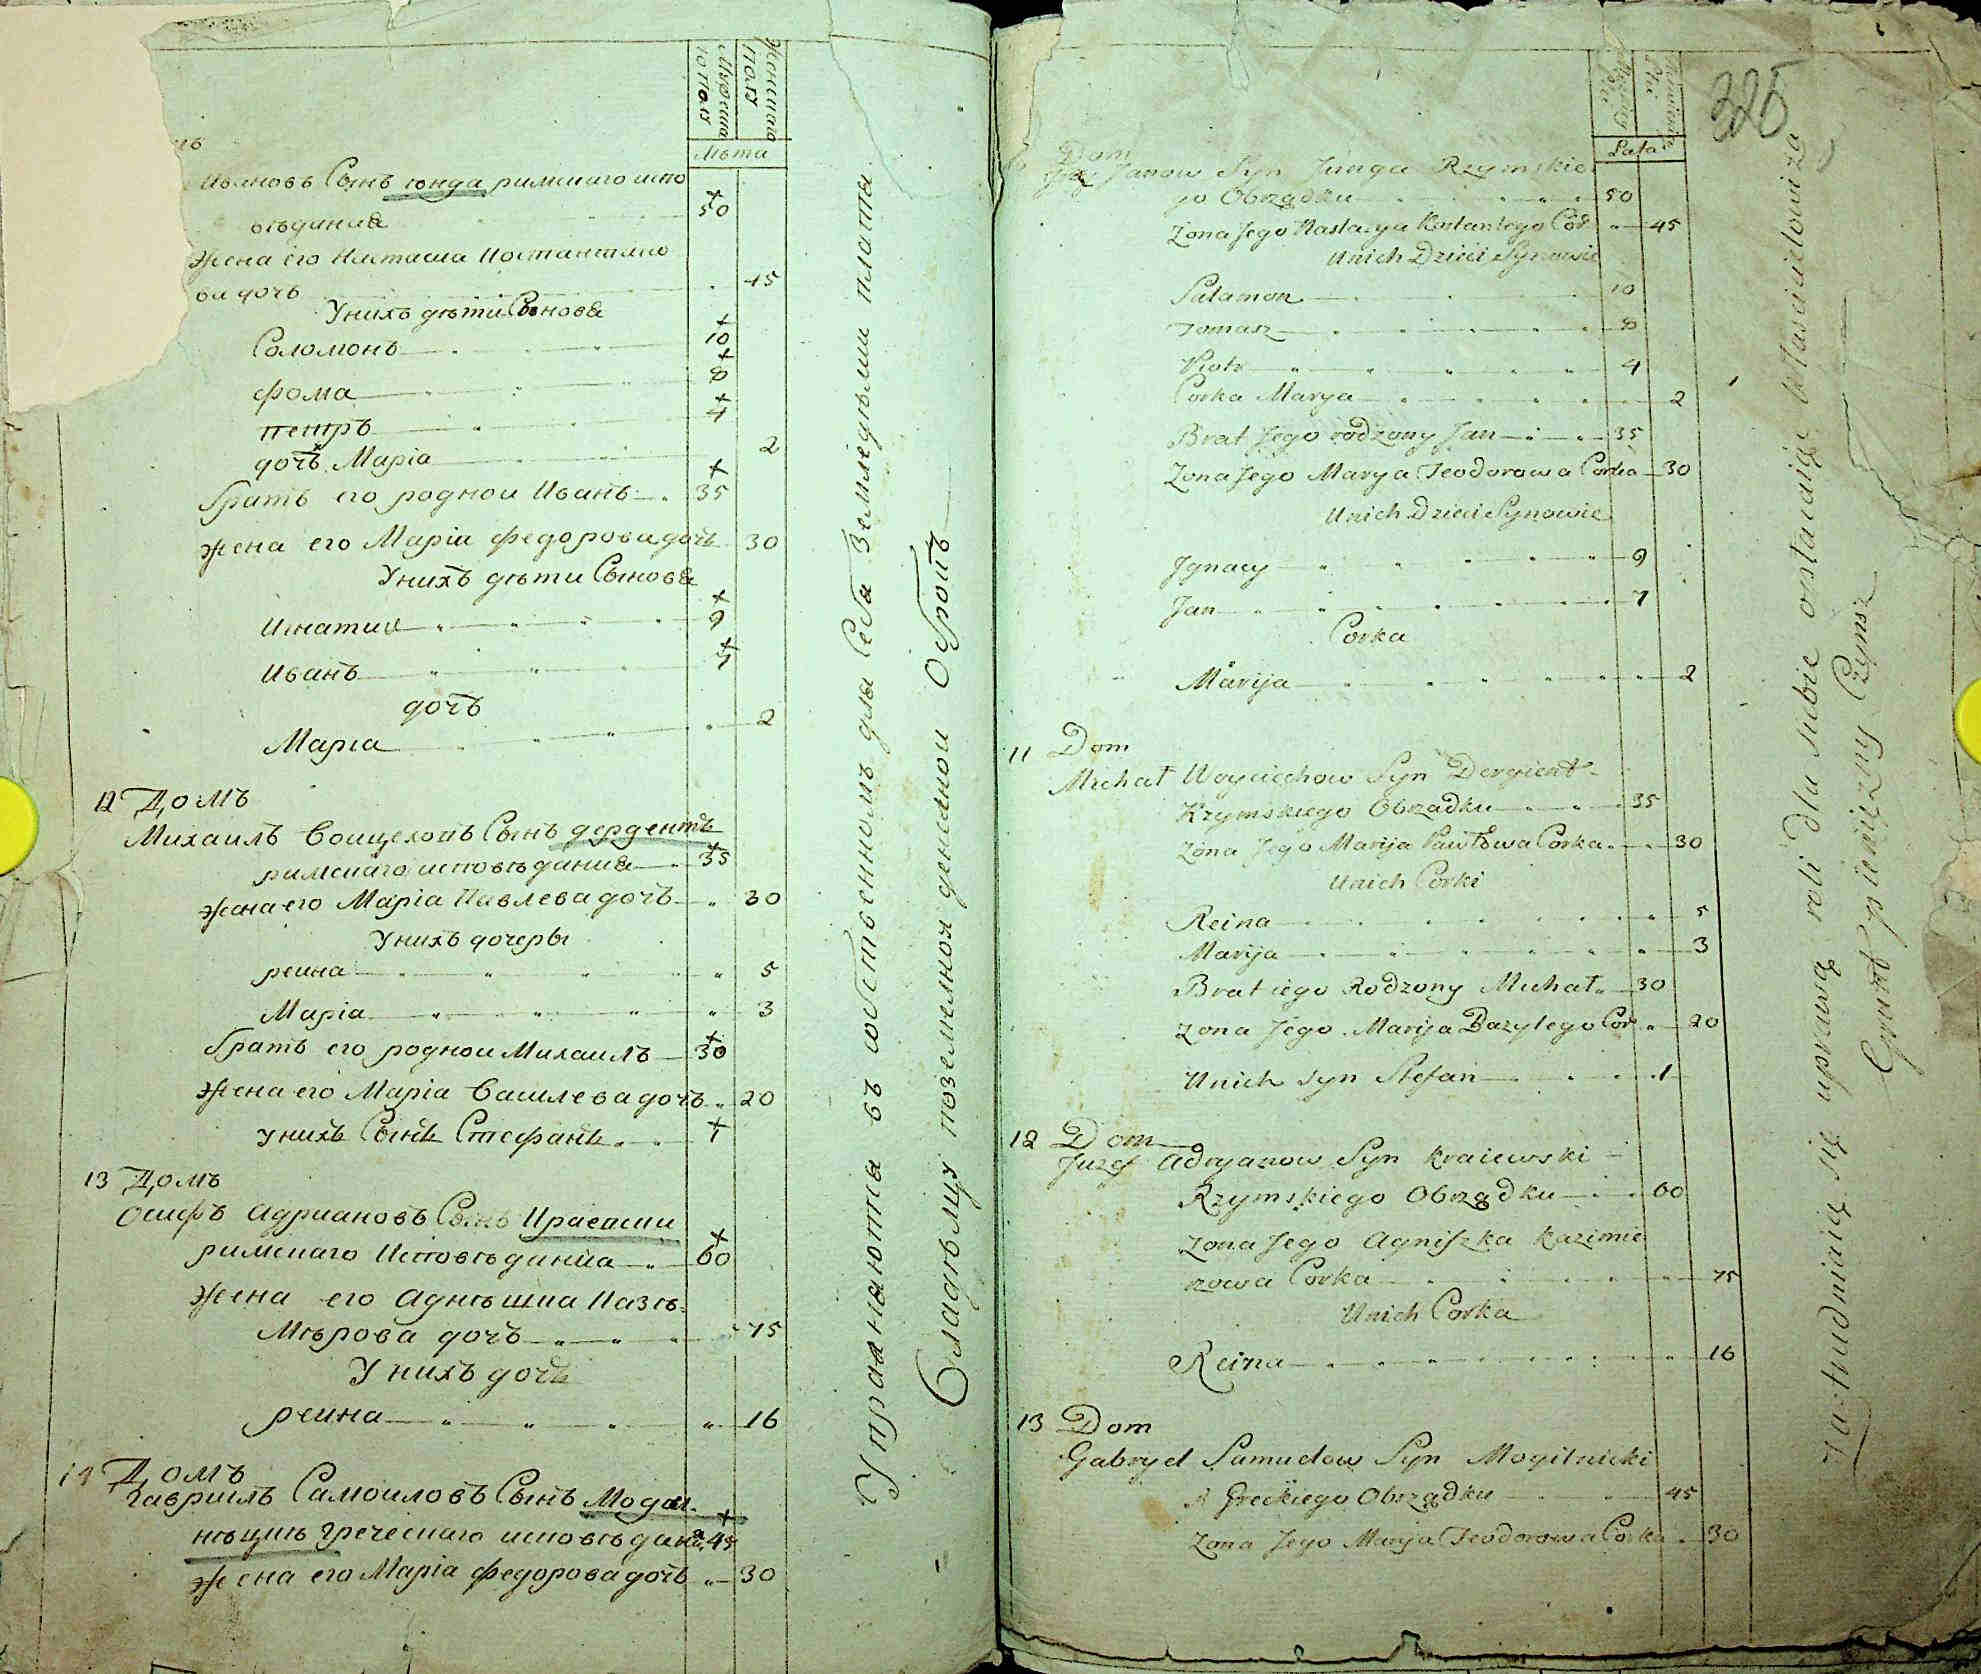 Мужеска
го полу
Женскаго
полу
Лѣта
Ивановъ Сынъ юнда римскаго испо
вѣдания 50
Жена его Настасиа Костантино
ва дочь 45
У нихъ дѣти Сынова
Соломонъ 10
фома 8
петръ 4
дочь Маріа 2
братъ его роднои Иванъ 35
жена его Маріа федорова дочь 30
У нихъ дѣти Сынова
Игнатии 9
Иванъ 7
дочь
Маріа 2
12 Домъ
Михаилъ Воицеховъ Сынъ дердентъ
римскаго исповѣдания 35
жена его Маріа Павлева дочь 30
У нихъ дочеры
реина 5
Маріа 3
братъ его роднои Михаилъ 30
Жена его Маріа Василева дочь 20
у нихъ Сынъ Стефанъ 1
13 Домъ
Осифъ Адриановъ Сынъ Краевски
римскаго Исповѣдания 60
Жена его Агнѣшка Казѣ
мѣрова дочь 75
У нихъ дочь
реина 16
14 Домъ
Гавриилъ Самоиловъ Сынъ Могил
нѣцкѣ Греческаго исповѣдани 45
Жена его Маріа федорова дочь 30
Упражняются въ собственномъ для Себя Земледѣлии платы
Владѣлцу поземелноя денежнои Оброкъ
325
Lata
Dom
Janow Syn Junga Rzymskie
go Obrządku 50
Zona Jego Nastazya Kostantego Cor. 45
U nich Dzieci Synowie
Salamon 10
Tomasz 8
Piotr 4
Corka Marya 2
Brat Jego rodzony Jan 35
Zona Jego Marya Teodorowa Corka 30
U nich Dzieci Synowie
Jgnacy 9
Jan 7
Corka
Marija 2
11 Dom
Michał Woyciechow Syn Dergient
Rzymskiego Obrządku 35
Zona Jego Marija Pawłowa Corka 30
U nich Corki
Reina 5
Marija 3
Brat iego Rodzony Michał 30
Zona Jego Marija Bazylego Cor. 20
U nich syn Stefan 1
12 Dom
Juzef Adryanow Syn Kraiewski
Rzymskiego Obrządku 60
Zona Jego Agniszka Kazimie
rzowa Corka 75
U nich Corka
Reina 16
13 Dom
Gabryel Samuelow Syn Mogilnicki
Greckiego Obrządku 45
Zona Jego Marya Teodorowa Corka 30
Zatrudniaią się uprawą roli dla siebie opłacaiąc Właścicielowi za
Grunt pieniężny Czynsz